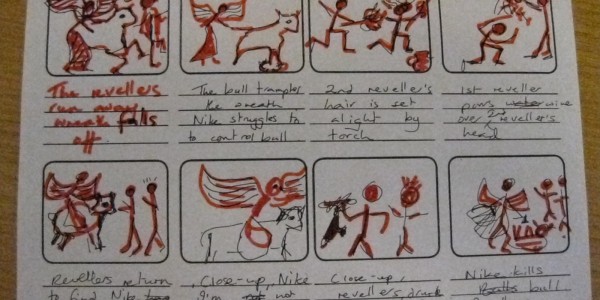 The revellers
run away
wreath falls
off.
The bull tramples
the wreath,
Nike struggles to
to control bull
2nd reveller's
hair is set
alight by
torch
1st reveller
pours water wine
over 2nd reveller's
head
Revellers return
to find Nike
Close-up, Nike
I'm not not
Close-up,
revellers drunk
Nike kills
bull